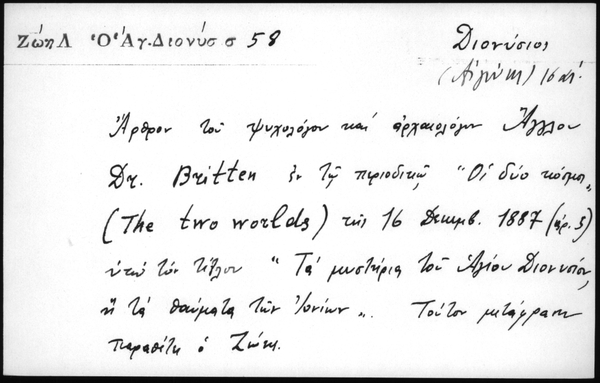 Ζώη Λ Ὁ Ἅγ. Διονύσ σ 58
Διονύσιος
(Αἰγίνης) 16 αἰ.
Ἄρθρον τοῦ ψυχολόγου καὶ ἀρχαιολόγου Ἄγγλου
Dr. Britten ἐν τῷ περιοδικῷ "Οἱ δύο κόσμοι"
(The two worlds) τῆς 16 Δεκεμβ. 1887 (ἀρ. 5)
ὑπὸ τὸν τίτλον "Τὰ μυστήρια τοῦ Ἁγίου Διονυσίου,
ἢ τὰ θαύματα τῶν Ἰονίων". Τοῦτον μετάφρασιν
παραθέτει ὁ Ζώης.